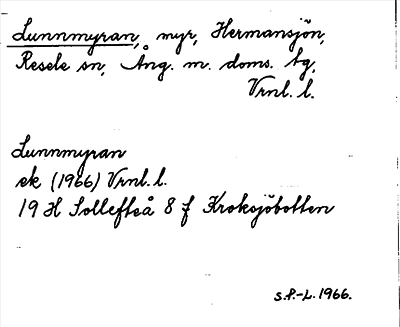 Lunnmyran, myr, Hermansjön,
Resele sn, Ång. m. doms. tg,
Vrnl. l.
Lunnmyran
ek (1966) Vrnl. l.
19 H Sollefteå 8 f Kroksjöbotten
S.P.-L. 1966.